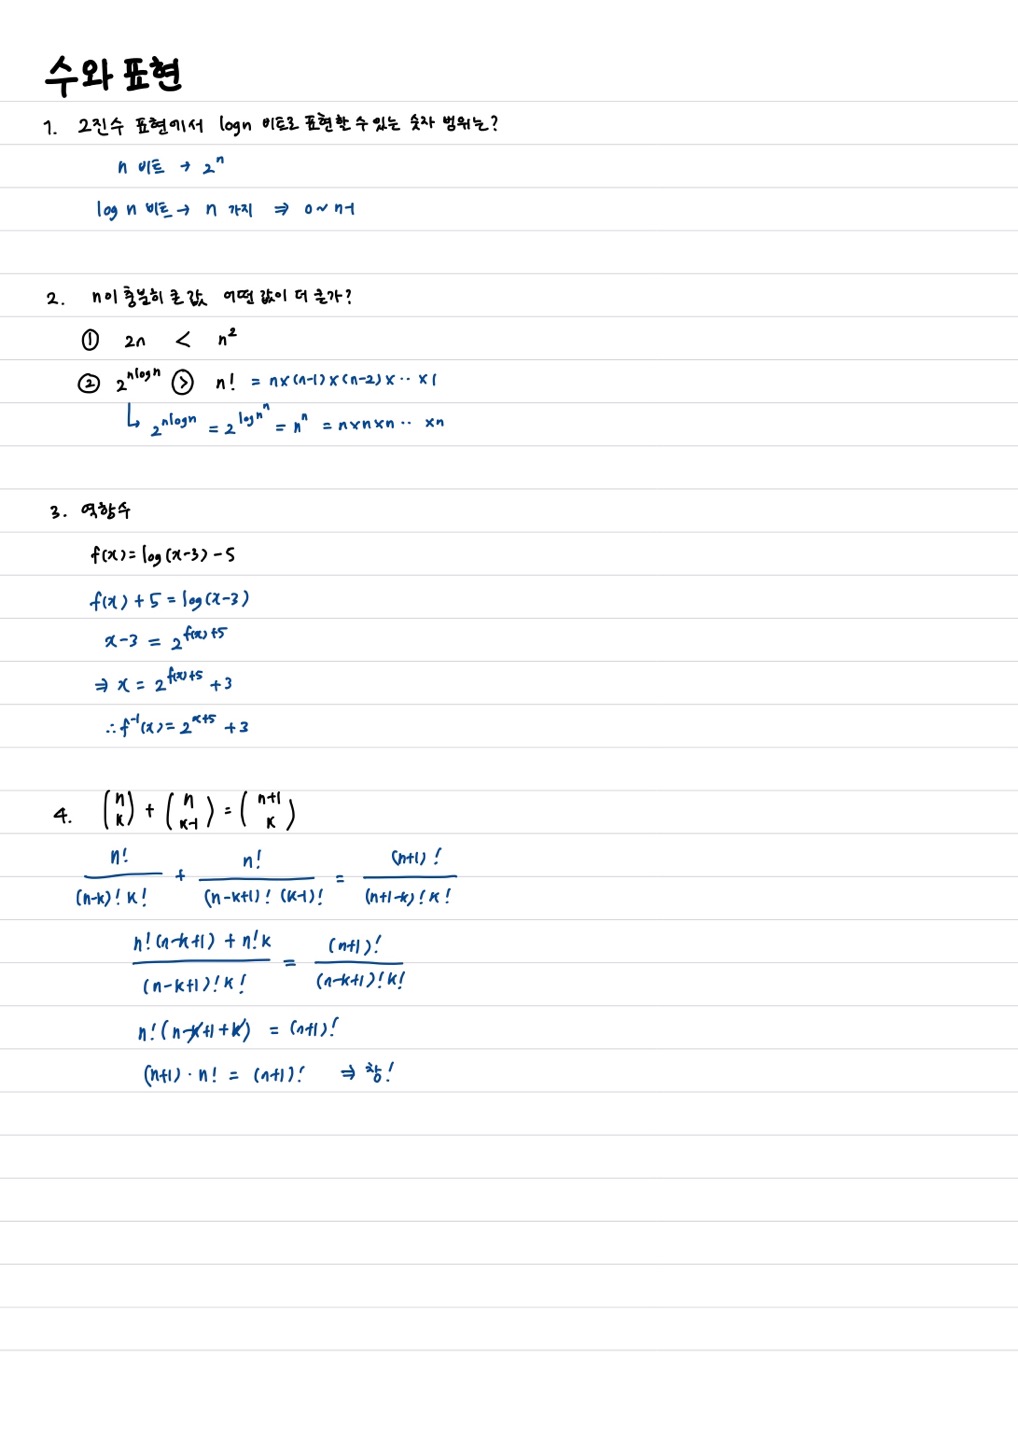 수와 표현
1. 2진수 표현에서 logn 비트로 표현할 수 있는 숫자 범위는?
n 비트 → 2ⁿ
log n 비트 → n 가지 ⇒ 0 ~ n-1
2. n이 충분히 큰 값, 어떤 값이 더 큰가?
① 2n < n²
② 2^{nlogn} > n! = n×(n-1)×(n-2)×‥×1
↳ 2^{nlogn} = 2^{logn^n} = nⁿ = n×n×n‥ ×n
3. 역함수
f(x) = log(x-3) - 5
f(x) + 5 = log(x-3)
x-3 = 2^{f(x)+5}
⇒ x = 2^{f(x)+5} + 3
∴ f⁻¹(x) = 2^{x+5} + 3
4. (n k) + (n k-1) = (n+1 k)
n!/((n-k)! k!) + n!/((n-k+1)! (k-1)!) = (n+1)!/((n+1-k)! k!)
(n!(n-k+1) + n!k)/((n-k+1)! k!) = (n+1)!/((n-k+1)! k!)
n!(n-k+1+k) = (n+1)!
(n+1)·n! = (n+1)! ⇒ 참!